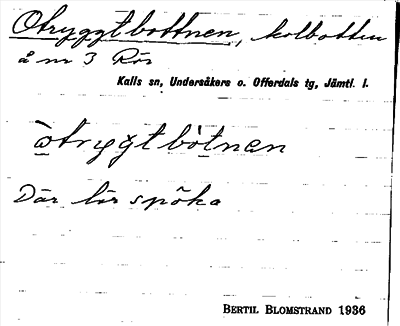 Otryggtbottnen, kolbotten
å nr 3 Rör
Kalls sn, Undersåkers o. Offerdals tg, Jämtl. l.
òtryg̀t bòtnen
Där lär spöka
BERTIL BLOMSTRAND 1936